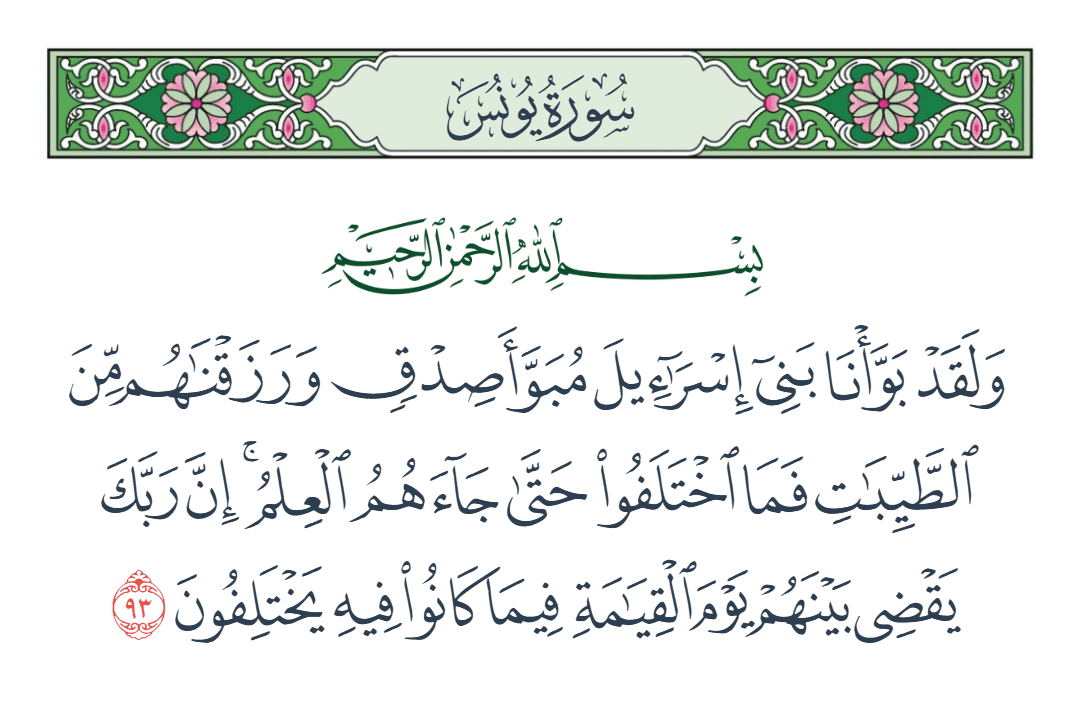 سُورَةُ يُونُسَ
بِسْمِ ٱللَّهِ ٱلرَّحْمَٰنِ ٱلرَّحِيمِ
وَلَقَدْ بَوَّأْنَا بَنِىٓ إِسْرَٰٓءِيلَ مُبَوَّأَ صِدْقٍ وَرَزَقْنَٰهُم مِّنَ
ٱلطَّيِّبَٰتِ فَمَا ٱخْتَلَفُوا۟ حَتَّىٰ جَآءَهُمُ ٱلْعِلْمُ ۚ إِنَّ رَبَّكَ
يَقْضِى بَيْنَهُمْ يَوْمَ ٱلْقِيَٰمَةِ فِيمَا كَانُوا۟ فِيهِ يَخْتَلِفُونَ ٩٣